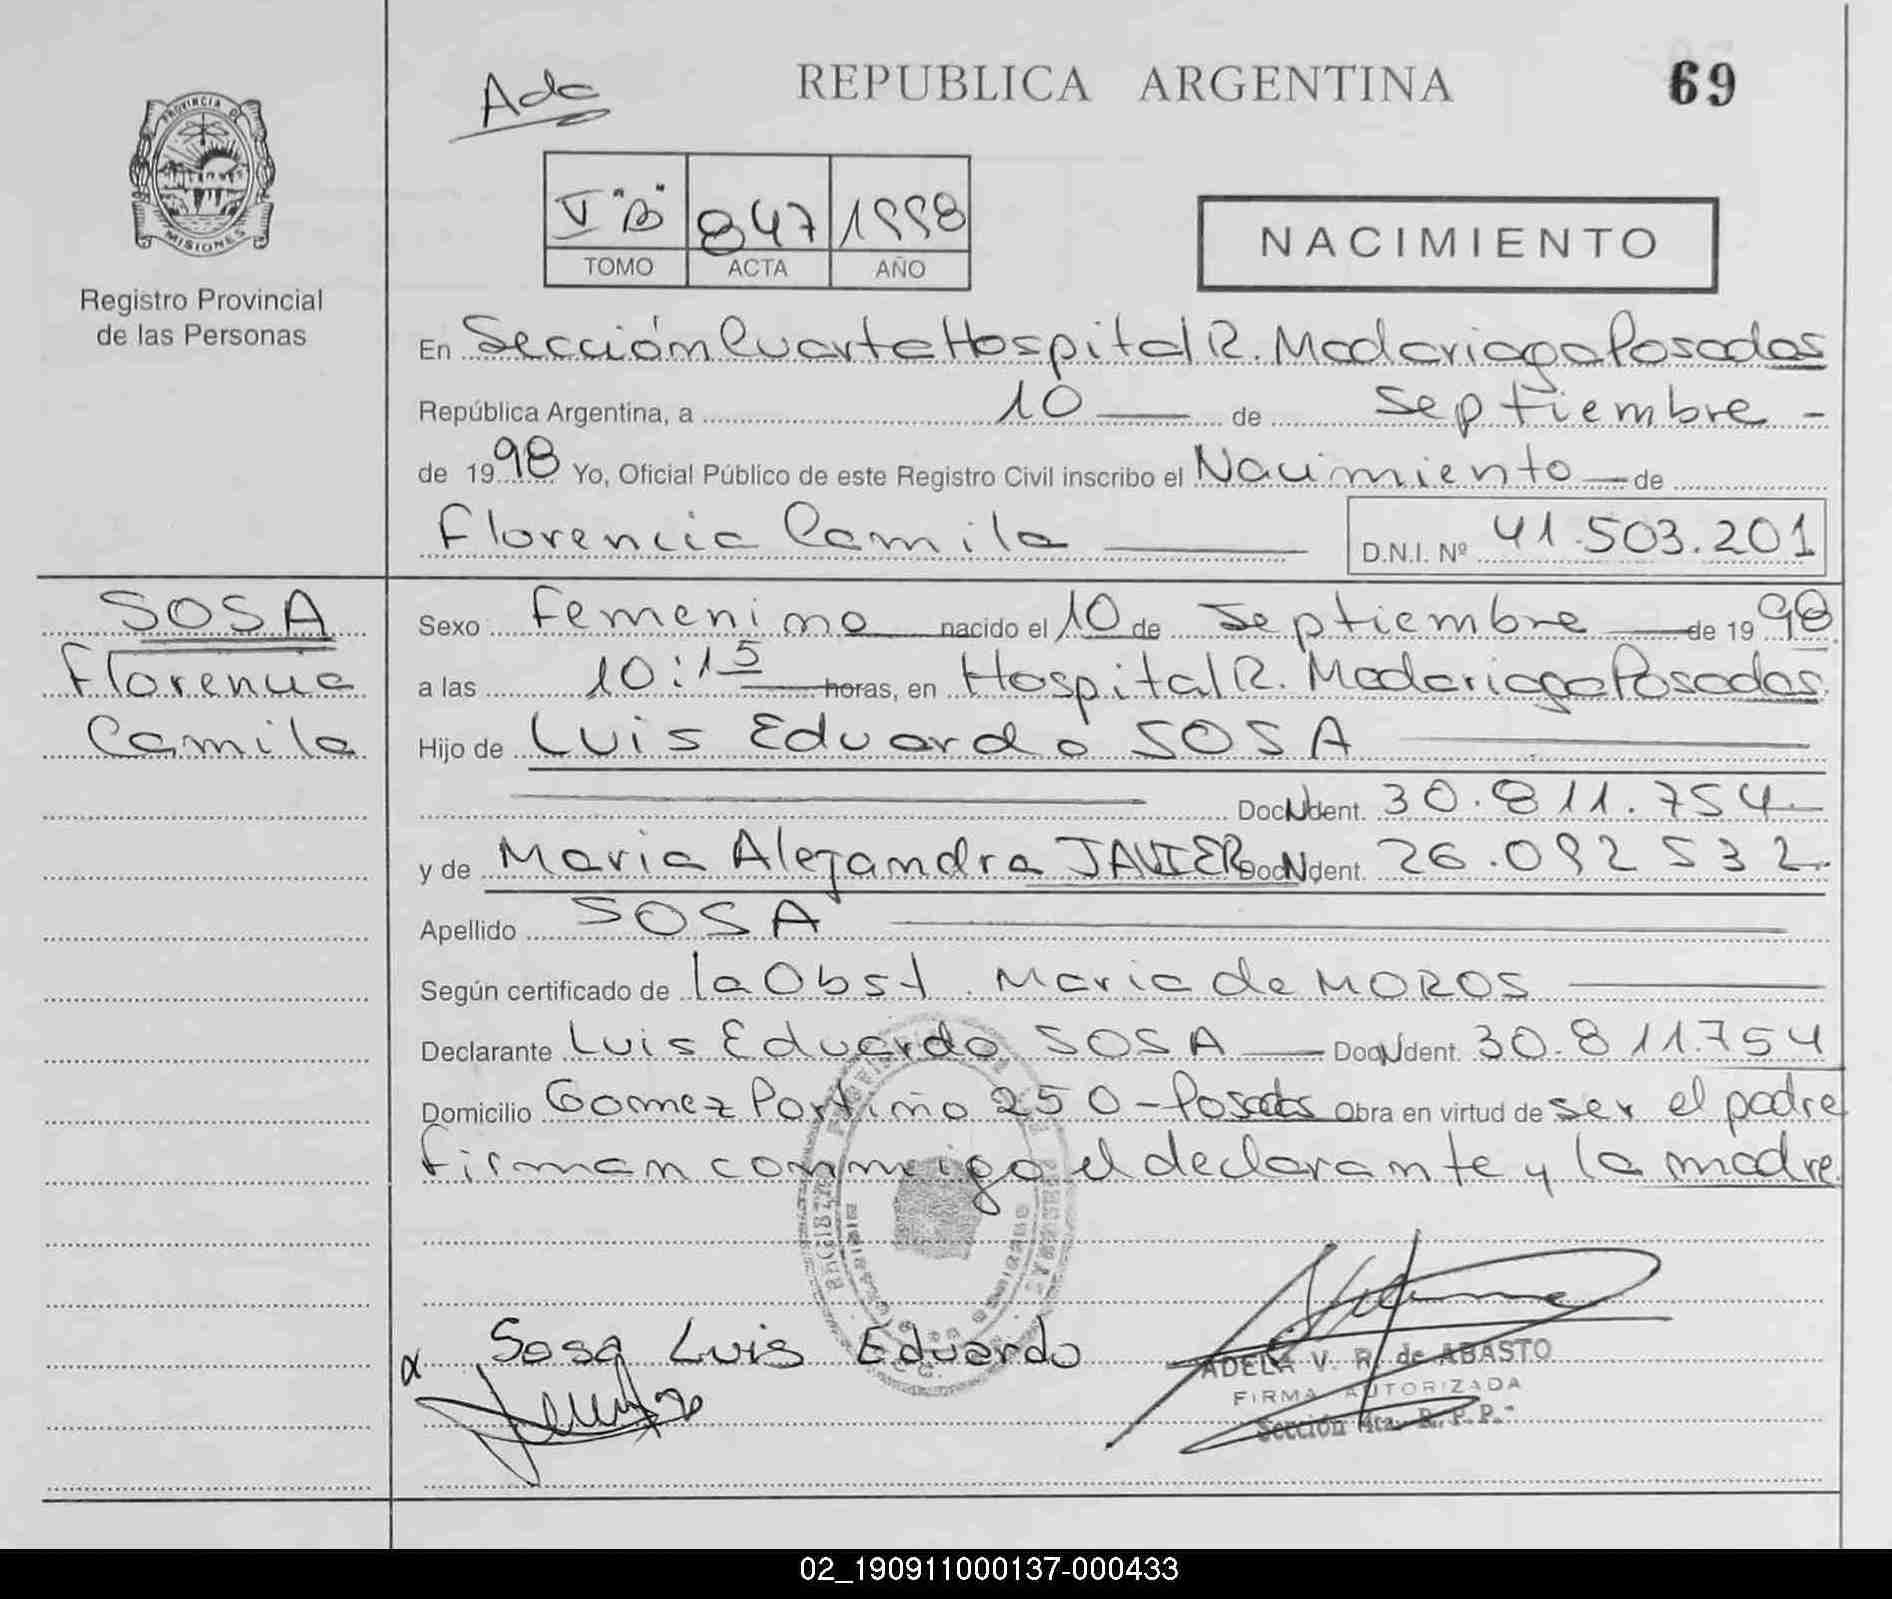 Ada
REPUBLICA ARGENTINA
69
PROVINCIA DE
MISIONES
Registro Provincial
de las Personas
V "B" 847 1998
TOMO ACTA AÑO
NACIMIENTO
En Sección Cuarta Hospital R. Madariaga Posadas
República Argentina, a 10 de Septiembre -
de 1998 Yo, Oficial Público de este Registro Civil inscribo el Nacimiento de
Florencia Camila D.N.I. Nº 41.503.201
SOSA
Florencia
Camila
Sexo femenino nacido el 10 de Septiembre de 1998
a las 10:15 horas, en Hospital R. Madariaga Posadas
Hijo de Luis Eduardo SOSA
Doc N Ident. 30.811.754
y de Maria Alejandra JAVIER Doc N Ident. 26.092 532
Apellido SOSA
Según certificado de la Obst. Maria de MOROS
Declarante Luis Eduardo SOSA Doc N Ident. 30.811.754
Domicilio Gomez Portiño 250 - Posadas Obra en virtud de ser el padre
firman conmigo el declarante y la madre
Sosa Luis Eduardo
ADELA V. R. de ABASTO
FIRMA AUTORIZADA
Sección 4ta. R. P. P.
02_190911000137-000433